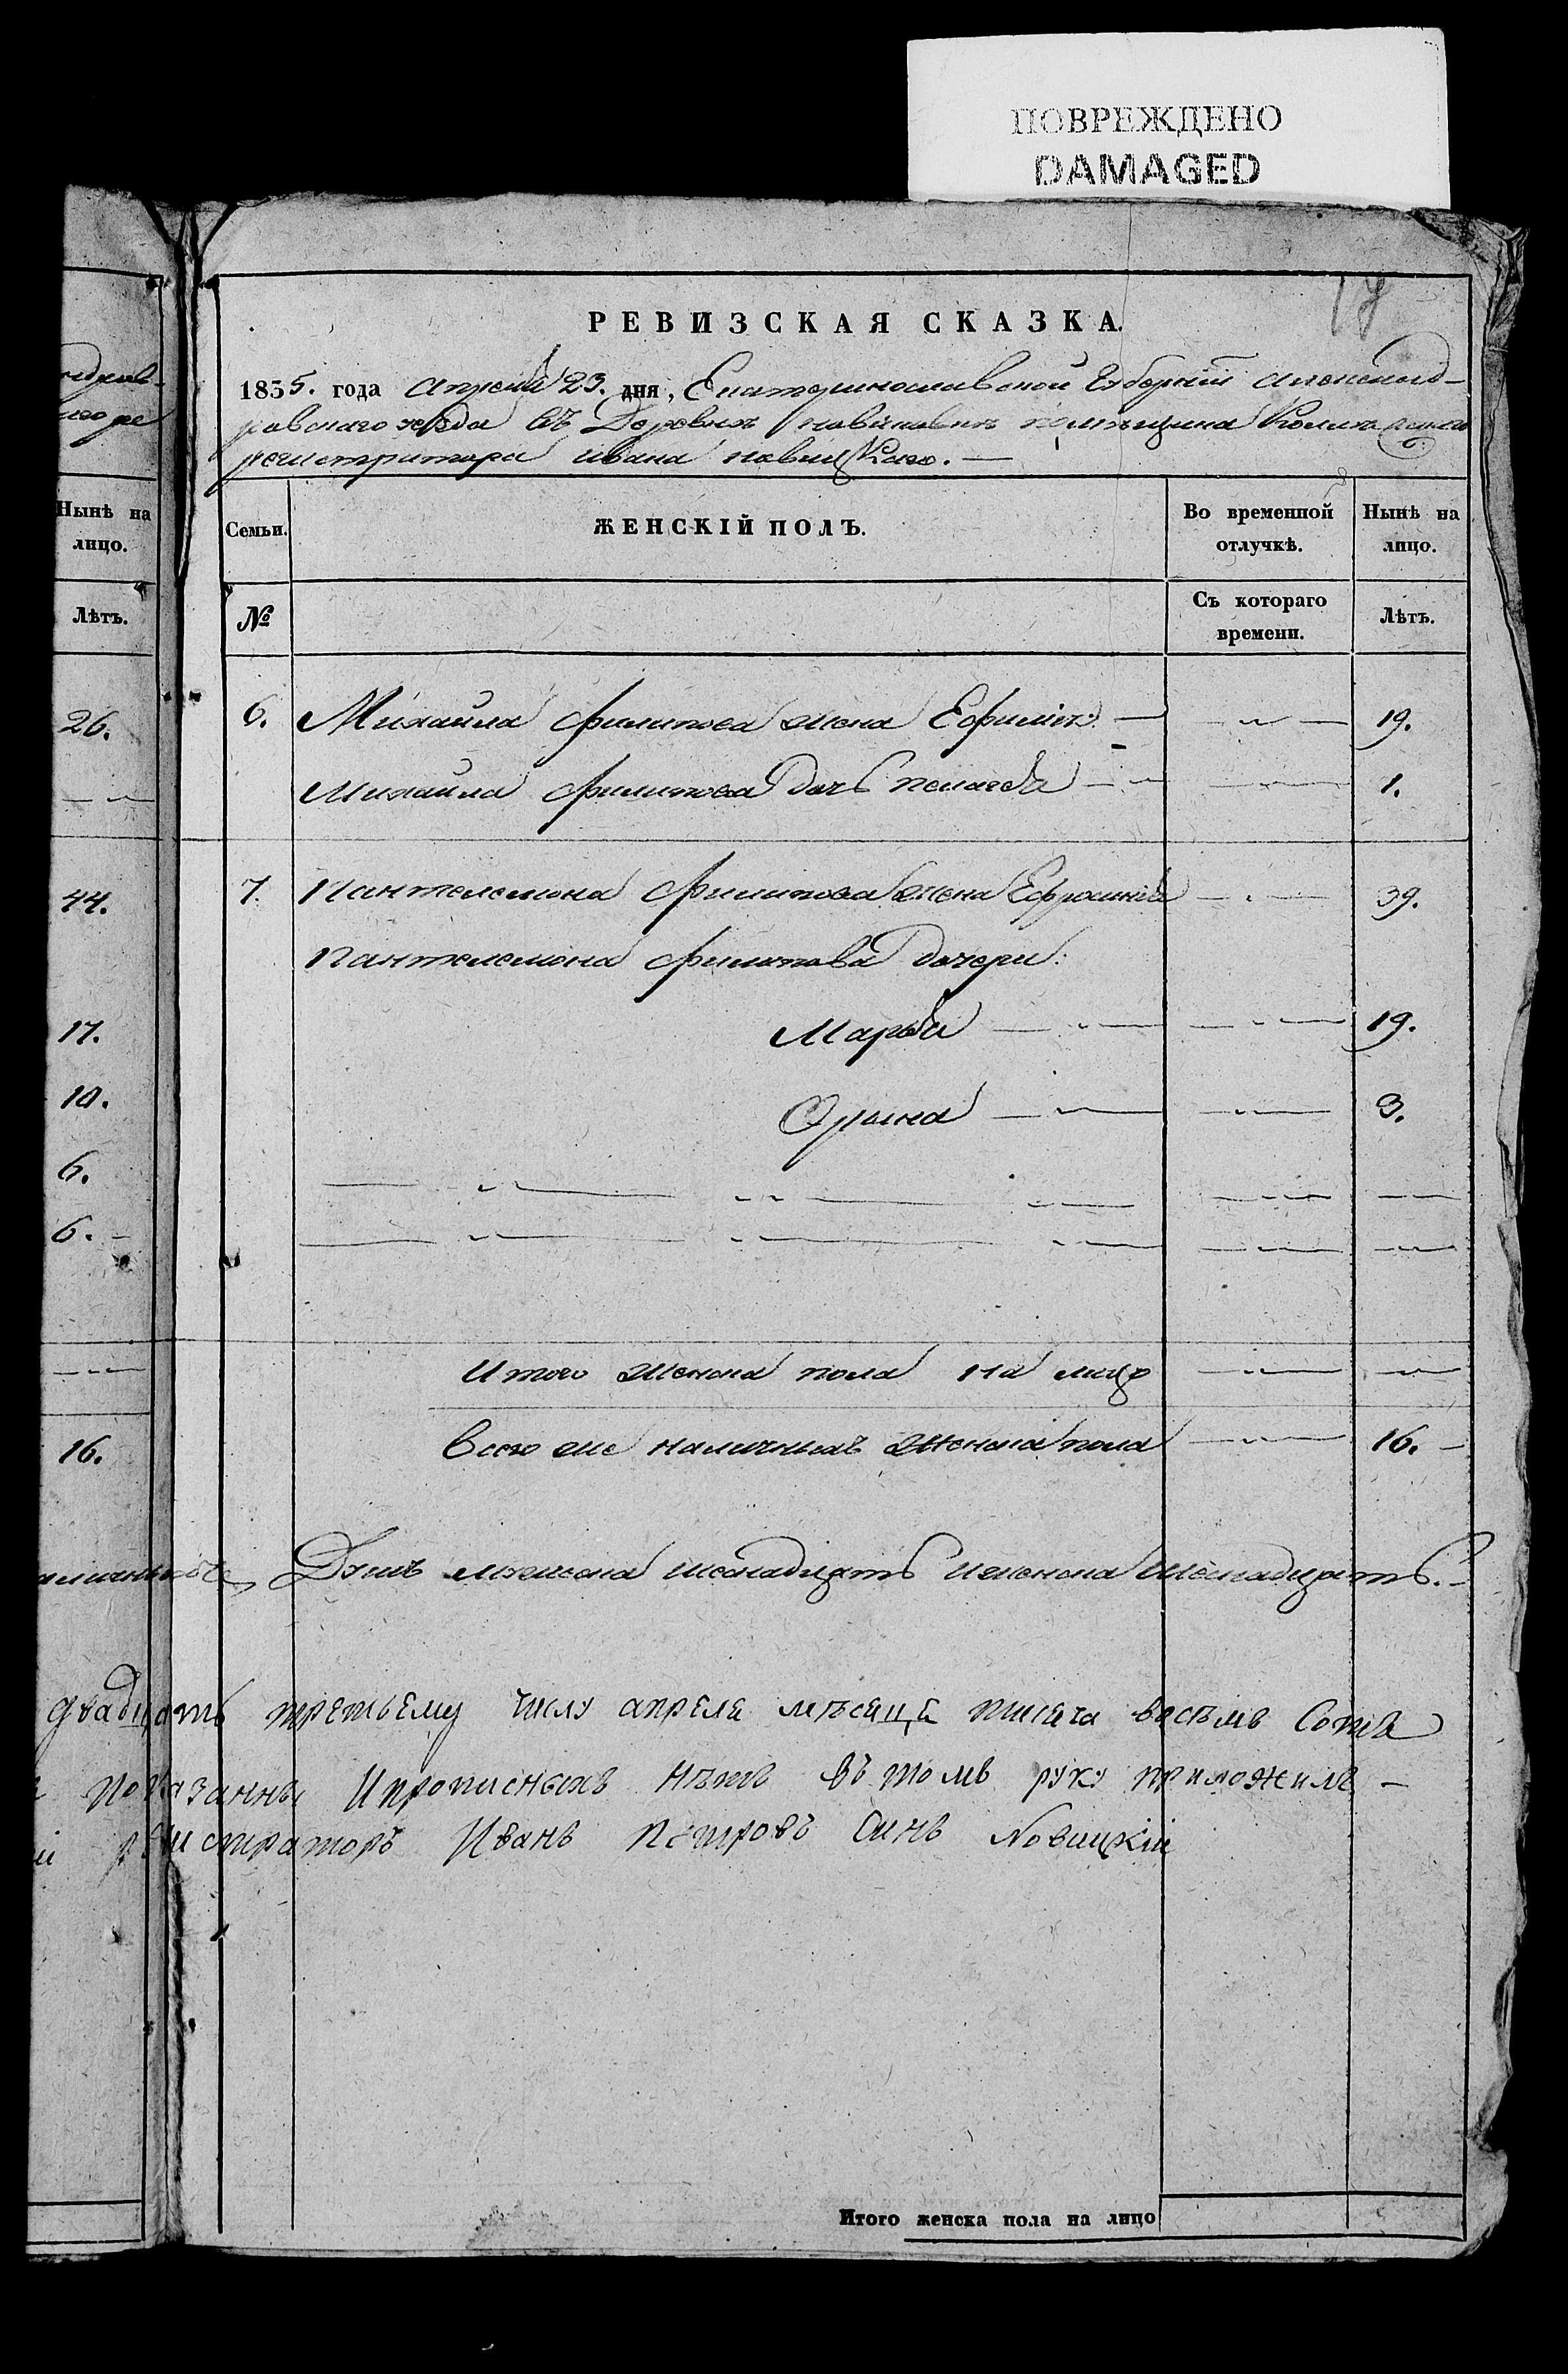 ПОВРЕЖДЕНО
DAMAGED
17
РЕВИЗСКАЯ СКАЗКА.
1835. года апреля 23. дня, Екатеринославской Губернии Александ-
ровскаго уезда въ Деревни помещика
регистратора Ивана Новицкаго. —
Нынѣ на лицо.
Семьи.
ЖЕНСКІЙ ПОЛЪ.
Во временной отлучкѣ.
Нынѣ на лицо.
Лѣтъ.
№
Съ котораго времени.
Лѣтъ.
26.
6. Михайла Филипова жена 19.
Михайла Филипова дочь Пелагея 1.
44.
7. Пантелемона Филипова жена Ефросинія 39.
Пантелемона Филипова дочери:
17.
Марья 19.
10.
Орина 3.
6.
6.
Итого женска пола на лицо
16.
Всего же наличныхъ женска пола 16.
Душъ мужеска шеснадцать и женска шеснадцать.
двадцать третьему числу апреля месяца тысяча восемь Сотъ
показанны И прописныхъ нѣтъ въ томъ руку приложилъ —
регистраторъ Иванъ Петровъ Синъ Новицкій
Итого женска пола на лицо